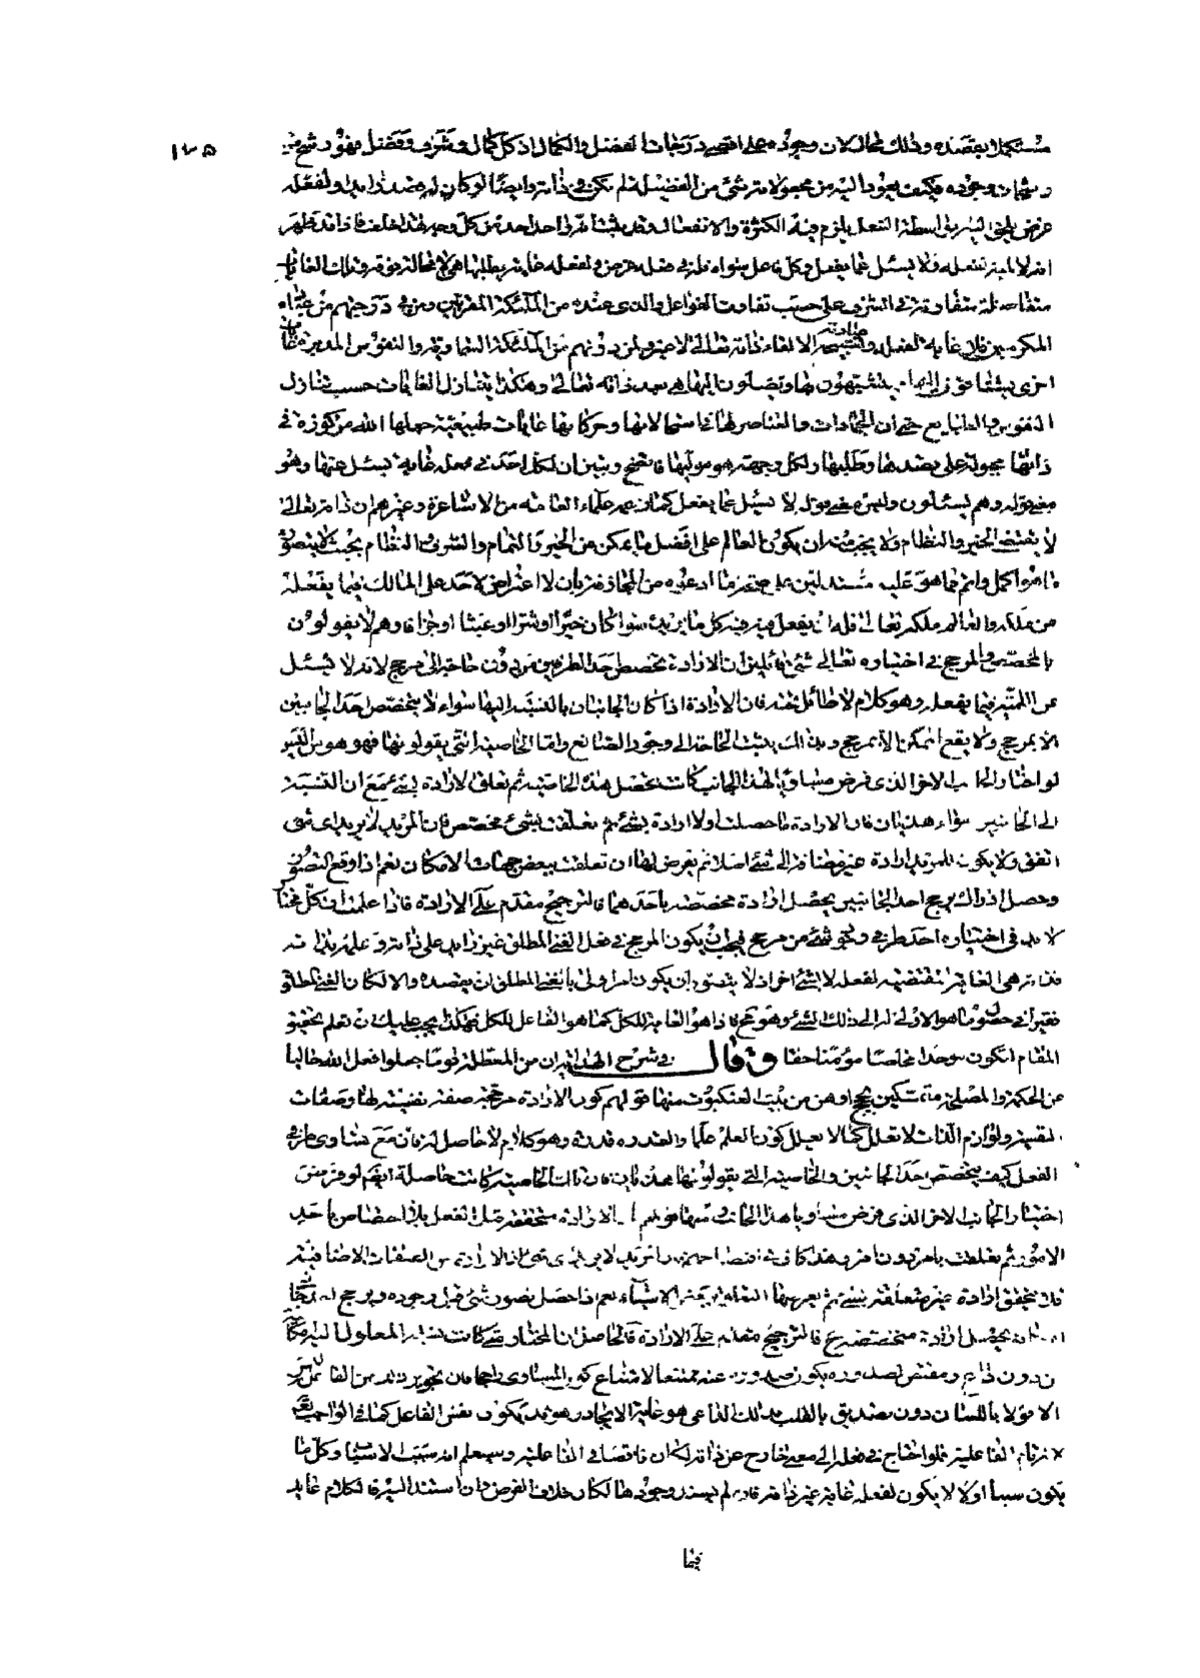 ١٣٥
مستكملا بقصده وذلك محال لان وجوده على اقصى درجات الفضل والكمال اذ كل كمال وشرف وفضل فهو رشح من
رشحات وجوده فكيف يعود اليه من مجعولاته شئ من الفضيلة لم يكن فى ذاته وايضا لو كان له قصد زايد او لفعله
غرض يلحق اليه بواسطة الفعل يلزم فيه الكثرة والانفعال وقد ثبت انه احد من كل وجه هذا خلف فاذا قد ظهر
انه لا لمية لفعله ولا يسئل عما يفعل وكل فاعل سواه فله فى فعله غرض ولفعله غاية يطلبها هى لا محالة فوقه وتلك الغايات
متفاضلة متفاوتة فى الشرف على حسب تفاوت الفواعل والذى عنده من الملئكة المقربين ومن فى درجتهم من عباده
المكرمين فلا غاية لفعله الا لقاء ذاته تعالى لا غير ولمن دونهم من الملئكة السماوية والنفوس المدبرة
اخرى يشتاقون اليها يتشبهون بها ويصلون اليها هى بعد ذاته تعالى وهكذا يتنازل الغايات حسب تنازل
النفوس والطبايع حتى ان الجمادات والعناصر لها فى استحالاتها وحركاتها غايات طبيعية جعلها الله مركوزة فى
ذاتها مجبولة على قصدها وطلبها ولكل وجهة هو موليها فاتضح وتبين ان لكل احد فى فعله غاية يسئل عنها وهو
معنى قوله وهم يسئلون وليس معنى قوله لا يسئل عما يفعل كما زعمه علماء العامة من الاشاعرة وغيرهم ان ذاته تعالى
لا يقتضى الخير والنظام ولا يجب منه ان يكون العالم على افضل ما يمكن من الخير والتمام والشرف والنظام بحيث لا يتصور
ما هو اكمل واتم مما هو عليه مستدلين على صحة ما ادعوه من المجازفة بان لا اعتراض لاحد على المالك فيما يفعله
من ملكه والعالم ملكه تعالى فله ان يفعل فيه كل ما يريد سواء كان خيرا او شرا او عبثا او جزافا وهم لا يقولون
بالمخصص والمرجح فى اختياره تعالى لشئ قائلين ان الارادة تخصص احد الطرفين من دون حاجة الى مرجح لانه لا يسئل
عن اللمية فيما يفعله وهو كلام لا طائل تحته فان الارادة اذا كان الجانبان بالنسبة اليها سواء لا يتخصص احد الجانبين
الا بمرجح ولا يقع الممكن الا بمرجح وبذلك يثبت الحاجة الى وجود الصانع واما الخاصية التى يقولونها فهو هوس اليس
لو اختار الجانب الاخر الذى فرض مساويا لهذا الجانب كانت تحصل هذه الخاصية ثم تعلق الارادة بشئ مع ان النسبة
الى الجانبين سواء هذيان فان الارادة ما حصلت اولا ارادة بشئ ثم تعلقت بشئ مخصص فان المريد لا يريد اى شئ
اتفق ولا يكون للمريد ارادة غير مضافة الى شئ اصلا ثم يعرض لها ان تعلقت ببعض جهات الامكان نعم اذا وقع التصور
وحصل ادراك يرجح احد الجانبين يحصل ارادة مخصصة باحدهما فالترجيح مقدم على الارادة فاذا علمت ان كل مختار
لا بد فى اختياره احد طرفى وجود شئ من مرجح فيجب ان يكون المرجح فى فعل الغنى المطلق غير زايد على ذاته وعلمه بذاته
فذاته هى الغاية المقتضية لفعله لا لشئ اخر اذ لا يتصور ان يكون امر اولى بالغنى المطلق ان يقصده والا لكان الغنى المطلق
فقيرا فى حصول ما هو الاولى له الى ذلك الشئ وهو محال فاذا هو الغاية للكل كما هو الفاعل للكل هكذا يجب عليك ان تعلم تحقيق
المقام لتكون موحدا مخلصا مؤمنا حقا وقال فى شرح الهداية ان من المعطلة قوما جعلوا فعل الله خاليا
عن الحكمة والمصلحة متمسكين بحجج اوهن من بيت العنكبوت منها قولهم كون الارادة مرجحة صفة نفسية لها وصفات
النفسية ولوازم الذات لا تعلل كما لا يعلل كون العلم علما والقدرة قدرة وهو كلام لا حاصل له فان مع تساوى طرفى
الفعل كيف يتخصص احد الجانبين والخاصية التى يقولونها هذيان فان تلك الخاصية كانت حاصلة ايضا لو فرض
اختيار الجانب الاخر الذى فرض مساويا لهذا الجانب ومنها قولهم ان الارادة متحققة قبل الفعل بلا اختصاص باحد
الامور ثم تعلقت بامر دون امر وهذا كاف فى افتضاحهم فان المريد لا يريد اى شئ اتفق اذ الارادة من الصفات الاضافية
فلا يتحقق ارادة غير متعلقة بشئ ثم يعرضها التعلق ببعض الاشياء نعم اذا حصل تصور شئ قبل وجوده ويرجح احد
يحصل ارادة متخصصة به فالترجيح متقدم على الارادة فالحاصل ان المختار متى كانت نسبة المعلول اليه
من دون داع ومقتض لصدوره يكون صدوره عنه ممتنعا لامتناع كون المساوى راجحا فان تجويز ذلك من القائل ليس
الا قولا باللسان دون تصديق بالقلب فذلك الداعى هو غاية الايجاد وهو قد يكون نفس الفاعل كما فى الواجب
لانه تام الفاعلية فلو احتاج فى فعله الى معنى خارج عن ذاته لكان ناقصا فى الفاعلية وسيعلم انه مسبب الاسباب وكل ما
يكون سببا اولا لا يكون لفعله غاية غير ذاته فان لم يستند وجودها لكان خلاف الفرض وان استند اليه فالكلام عايد
فيما